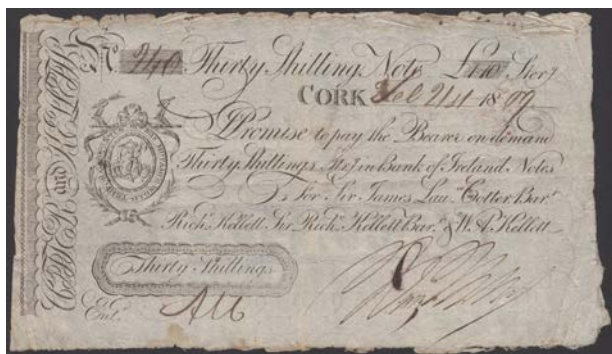 No. 240 Thirty Shilling Note £1.10 Ster.g
CORK Feb 21st 1809
I Promise to pay the Bearer on demand
Thirty Shillings Ster.g in Bank of Ireland Notes
For Sir James Lau.ce Cotter Bar.t
Rich.d Kellett Sir Rich.d Kellett Bar.t & W. A. Kellett
Thirty Shillings
Ent.d
COTTER and KELLETTS